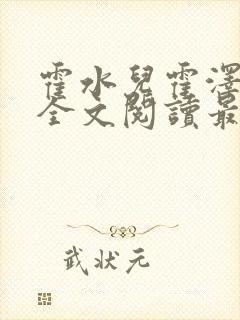 霍水兒霍澤
全文閱讀最
武狀元